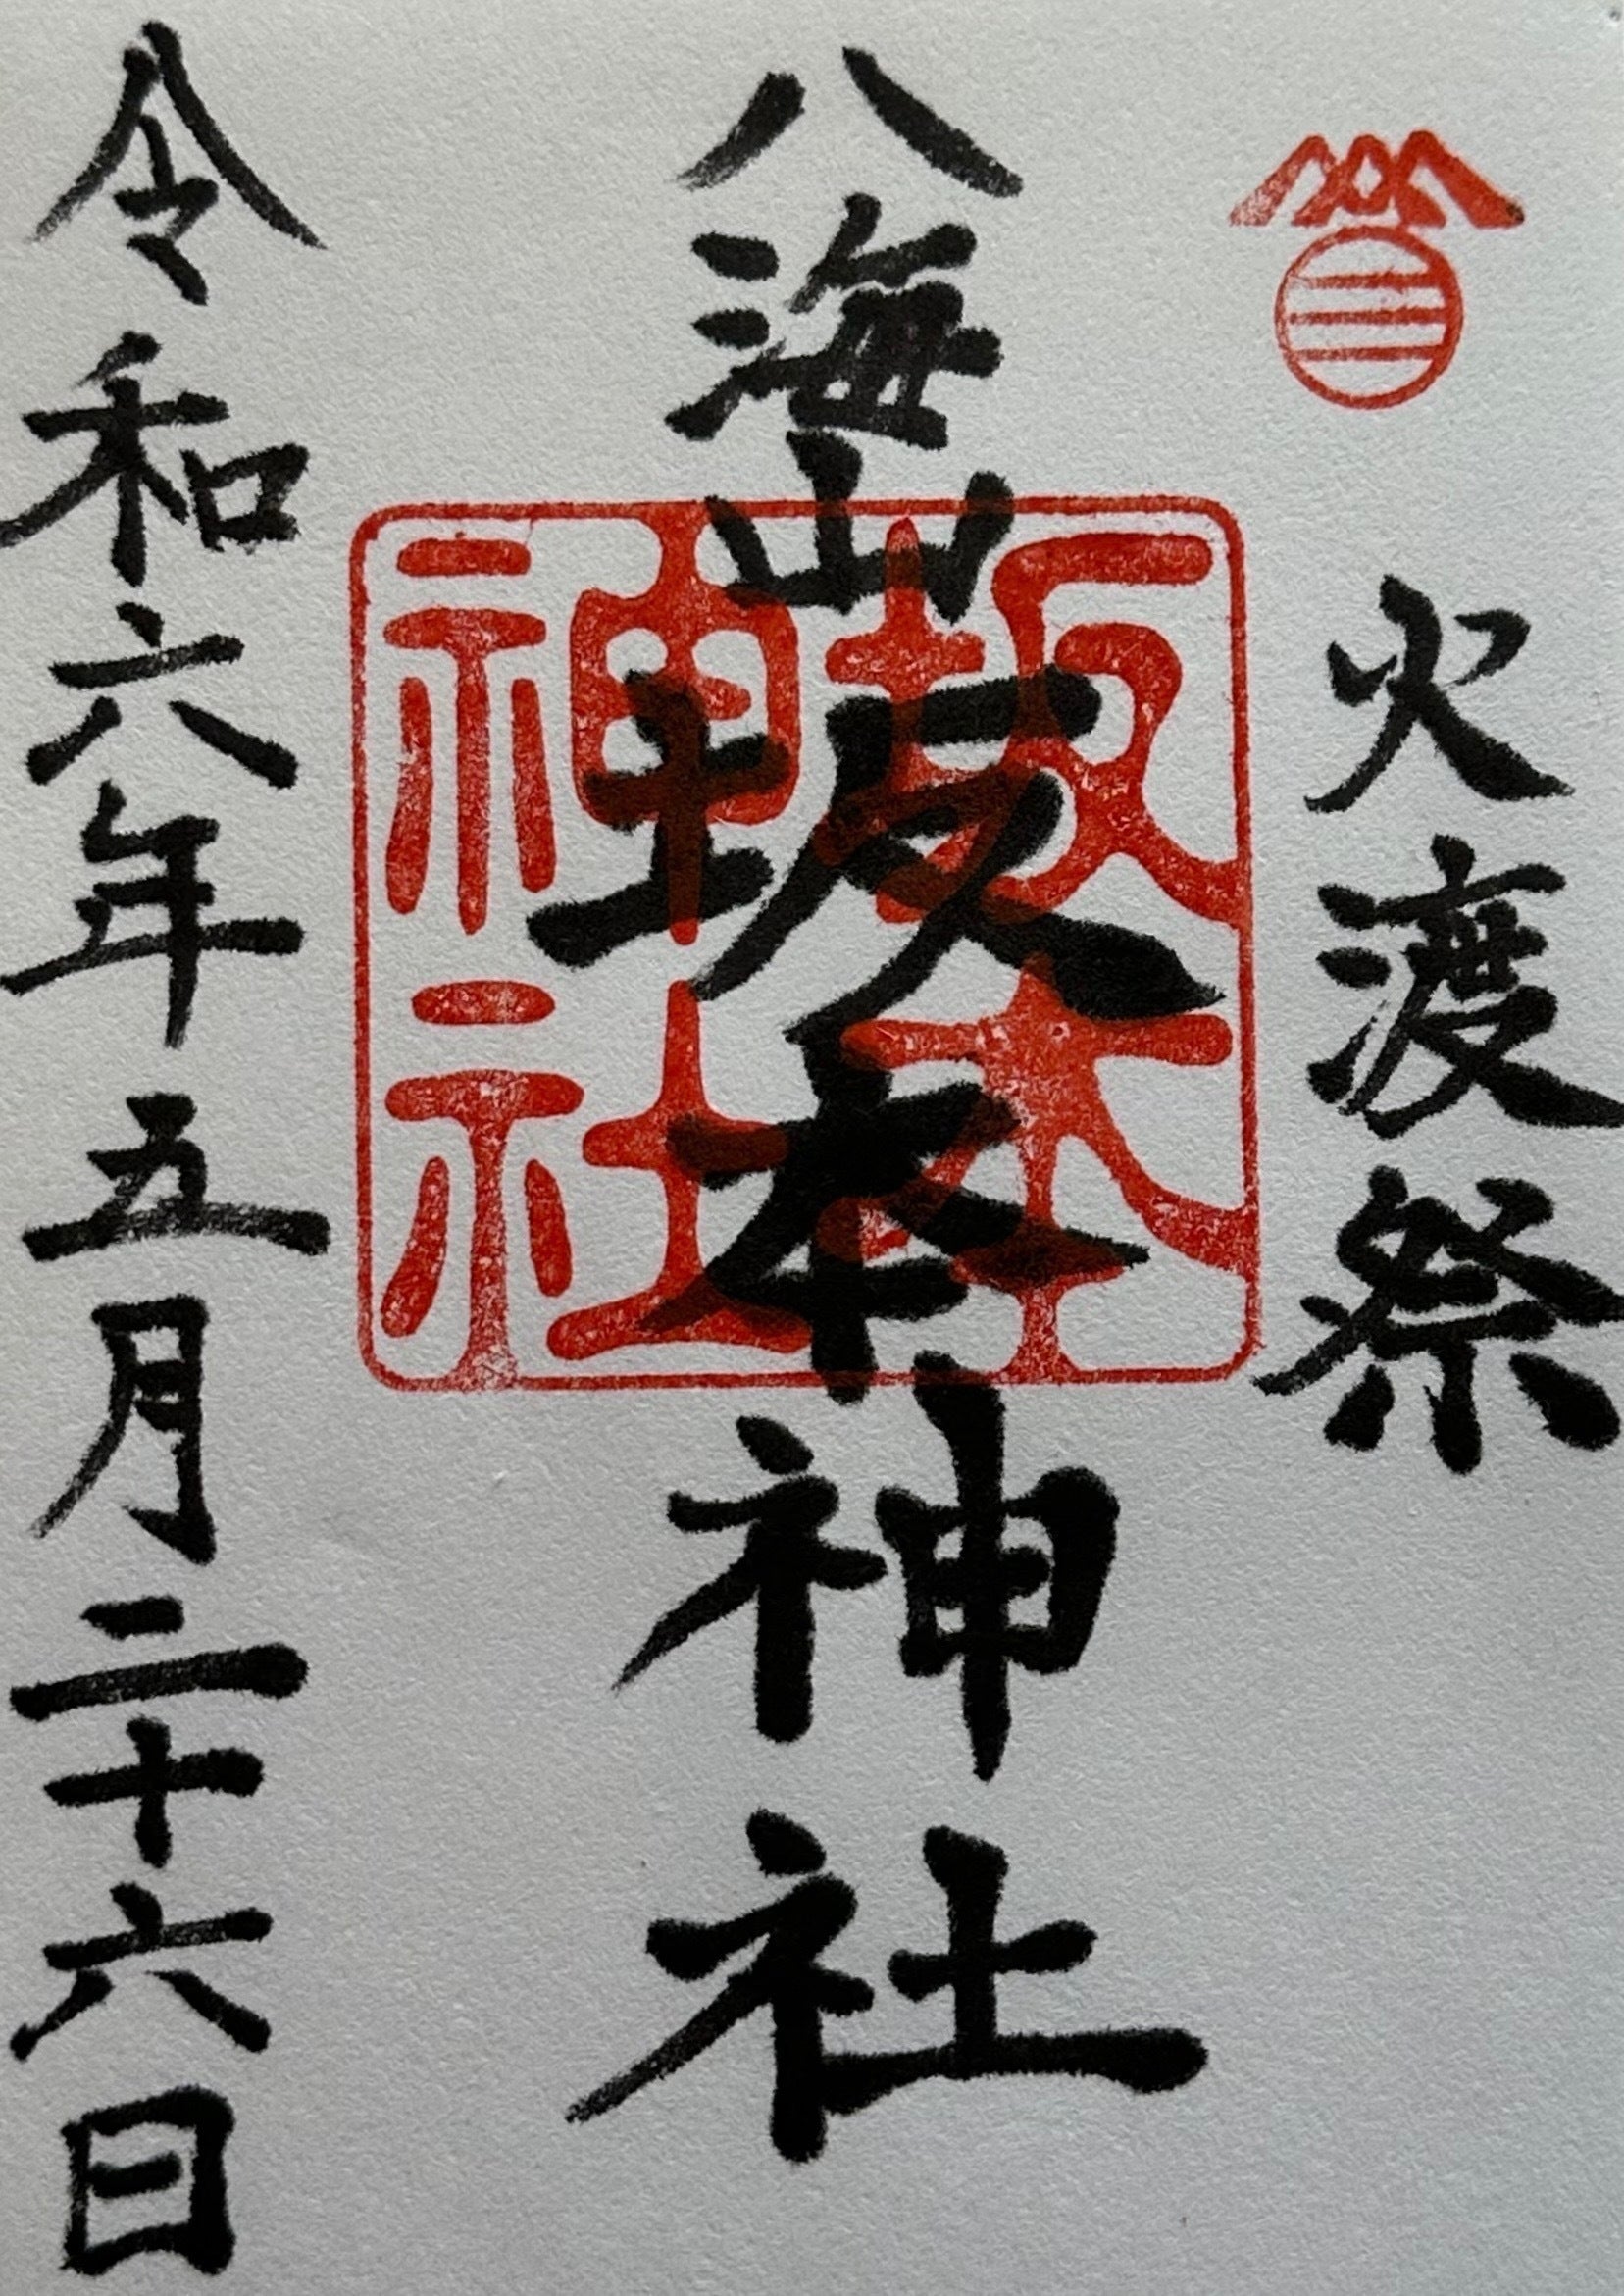 火渡祭
八海山
坂本神社
坂本神社
令和六年五月二十六日